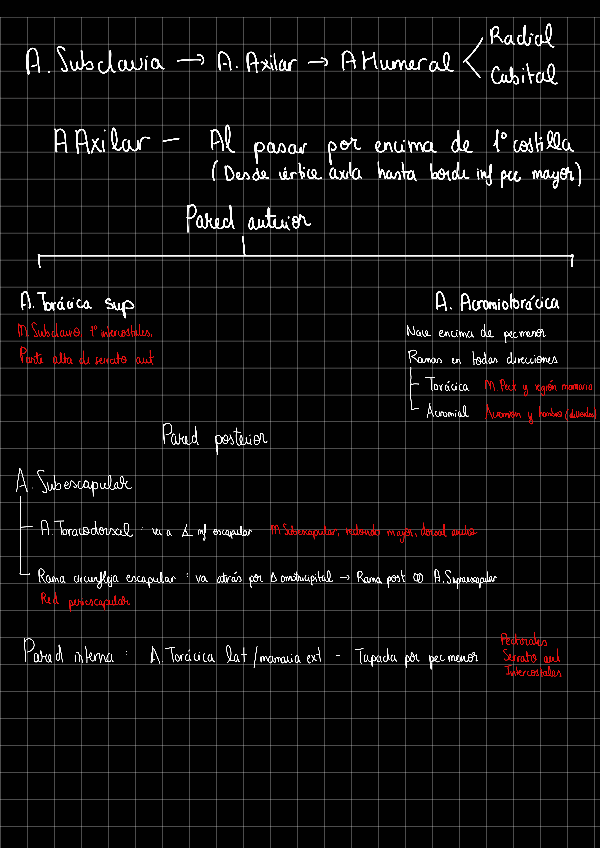 A. Subclavia → A. Axilar → A Humeral < Radial
Cubital
A Axilar — Al pasar por encima de 1º costilla
(Desde vértice axila hasta borde inf pec mayor)
Pared anterior
A. Torácica sup
M Subclavio 1º intercostales.
Parte alta de serrato ant
A. Acromiotorácica
Nace encima de pec menor
Ramas en todas direcciones
Torácica M. Pec y región mamaria
Acromial Acromion y hombro (deltoides)
Pared posterior
A. Subescapular
A. Toracodorsal : va a ∆ inf escapular M Subescapular, redondo mayor, dorsal ancho
Rama circunfleja escapular : va atrás por ∆ omotricipital → Rama post ∞ A. Supraescapular
Red periescapular
Pared interna : A. Torácica lat / mamaria ext - Tapada por pec menor
Pectorales
Serrato ant
Intercostales